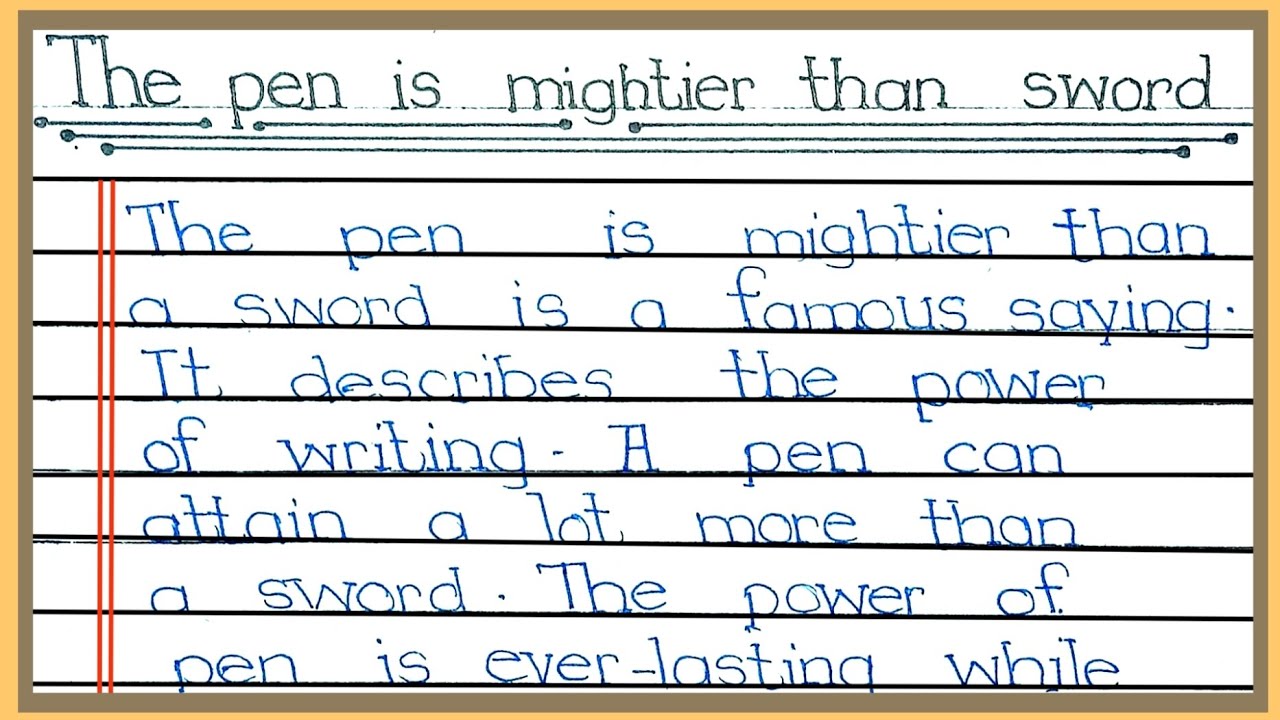 The pen is mightier than sword
The pen is mightier than
a sword is a famous saying.
It describes the power
of writing. A pen can
attain a lot more than
a sword. The power of
pen is ever-lasting while